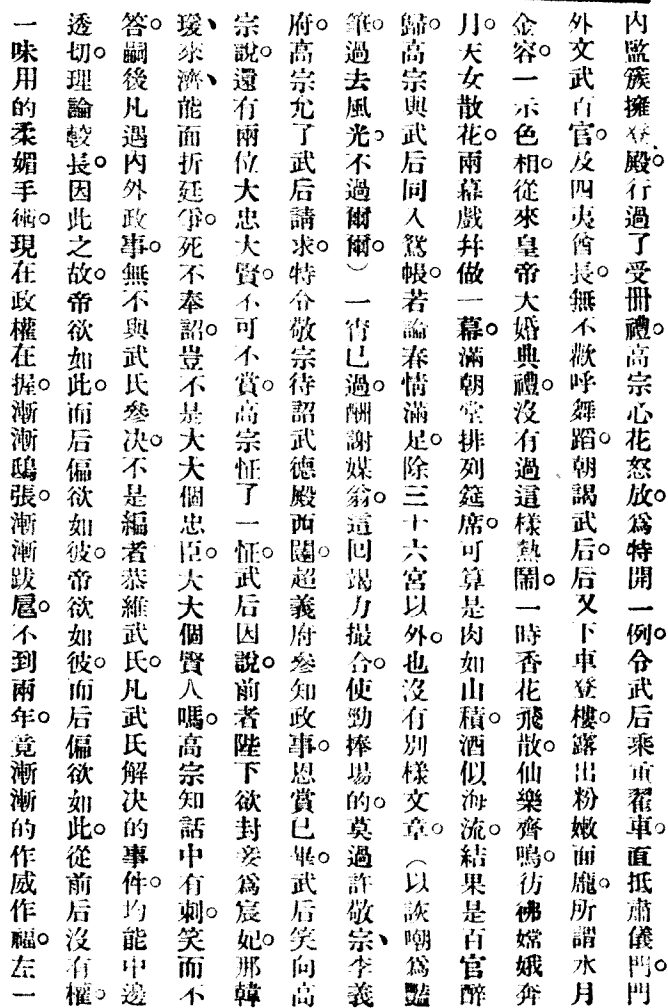 內監簇擁登殿。行過了受冊禮。高宗心花怒放。爲特開一例。令武后乘重翟車。直抵肅儀門。門
外文武百官。及四夷酋長。無不歡呼舞蹈。朝謁武后。后又下車登樓。露出粉嫩面龐。所謂水月
金容。一示色相。從來皇帝大婚典禮。沒有過這樣熱鬧。一時香花飛散。仙樂齊鳴。彷彿嫦娥奔
月。天女散花。兩幕戲幷做一幕。滿朝堂排列筵席。可算是肉如山積。酒似海流。結果是百官醉
歸。高宗與武后同入鴛帳。若論春情滿足。除三十六宮以外。也沒有別樣文章。（以詼嘲爲豔
筆。過去風光。不過爾爾）一宵已過。酬謝媒翁。這回竭力撮合。使勁捧場的。莫過許敬宗、李義
府。高宗允了武后請求。特令敬宗待詔武德殿西闥。超義府參知政事。恩賞已畢。武后笑向高
宗說。還有兩位大忠大賢。不可不賞。高宗怔了一怔。武后因說。前者陛下欲封妾爲宸妃。那韓
瑗、來濟、能面折廷爭。死不奉詔。豈不是大大個忠臣。大大個賢人嗎。高宗知話中有刺。笑而不
答。嗣後凡遇內外政事。無不與武氏參決。不是編者恭維武氏。凡武氏解決的事件。均能中邊
透切。理論較長。因此之故。帝欲如此。而后偏欲如彼。帝欲如彼。而后偏欲如此。從前后沒有權。
一味用的柔媚手術。現在政權在握。漸漸鴟張。漸漸跋扈。不到兩年。竟漸漸的作威作福。左一